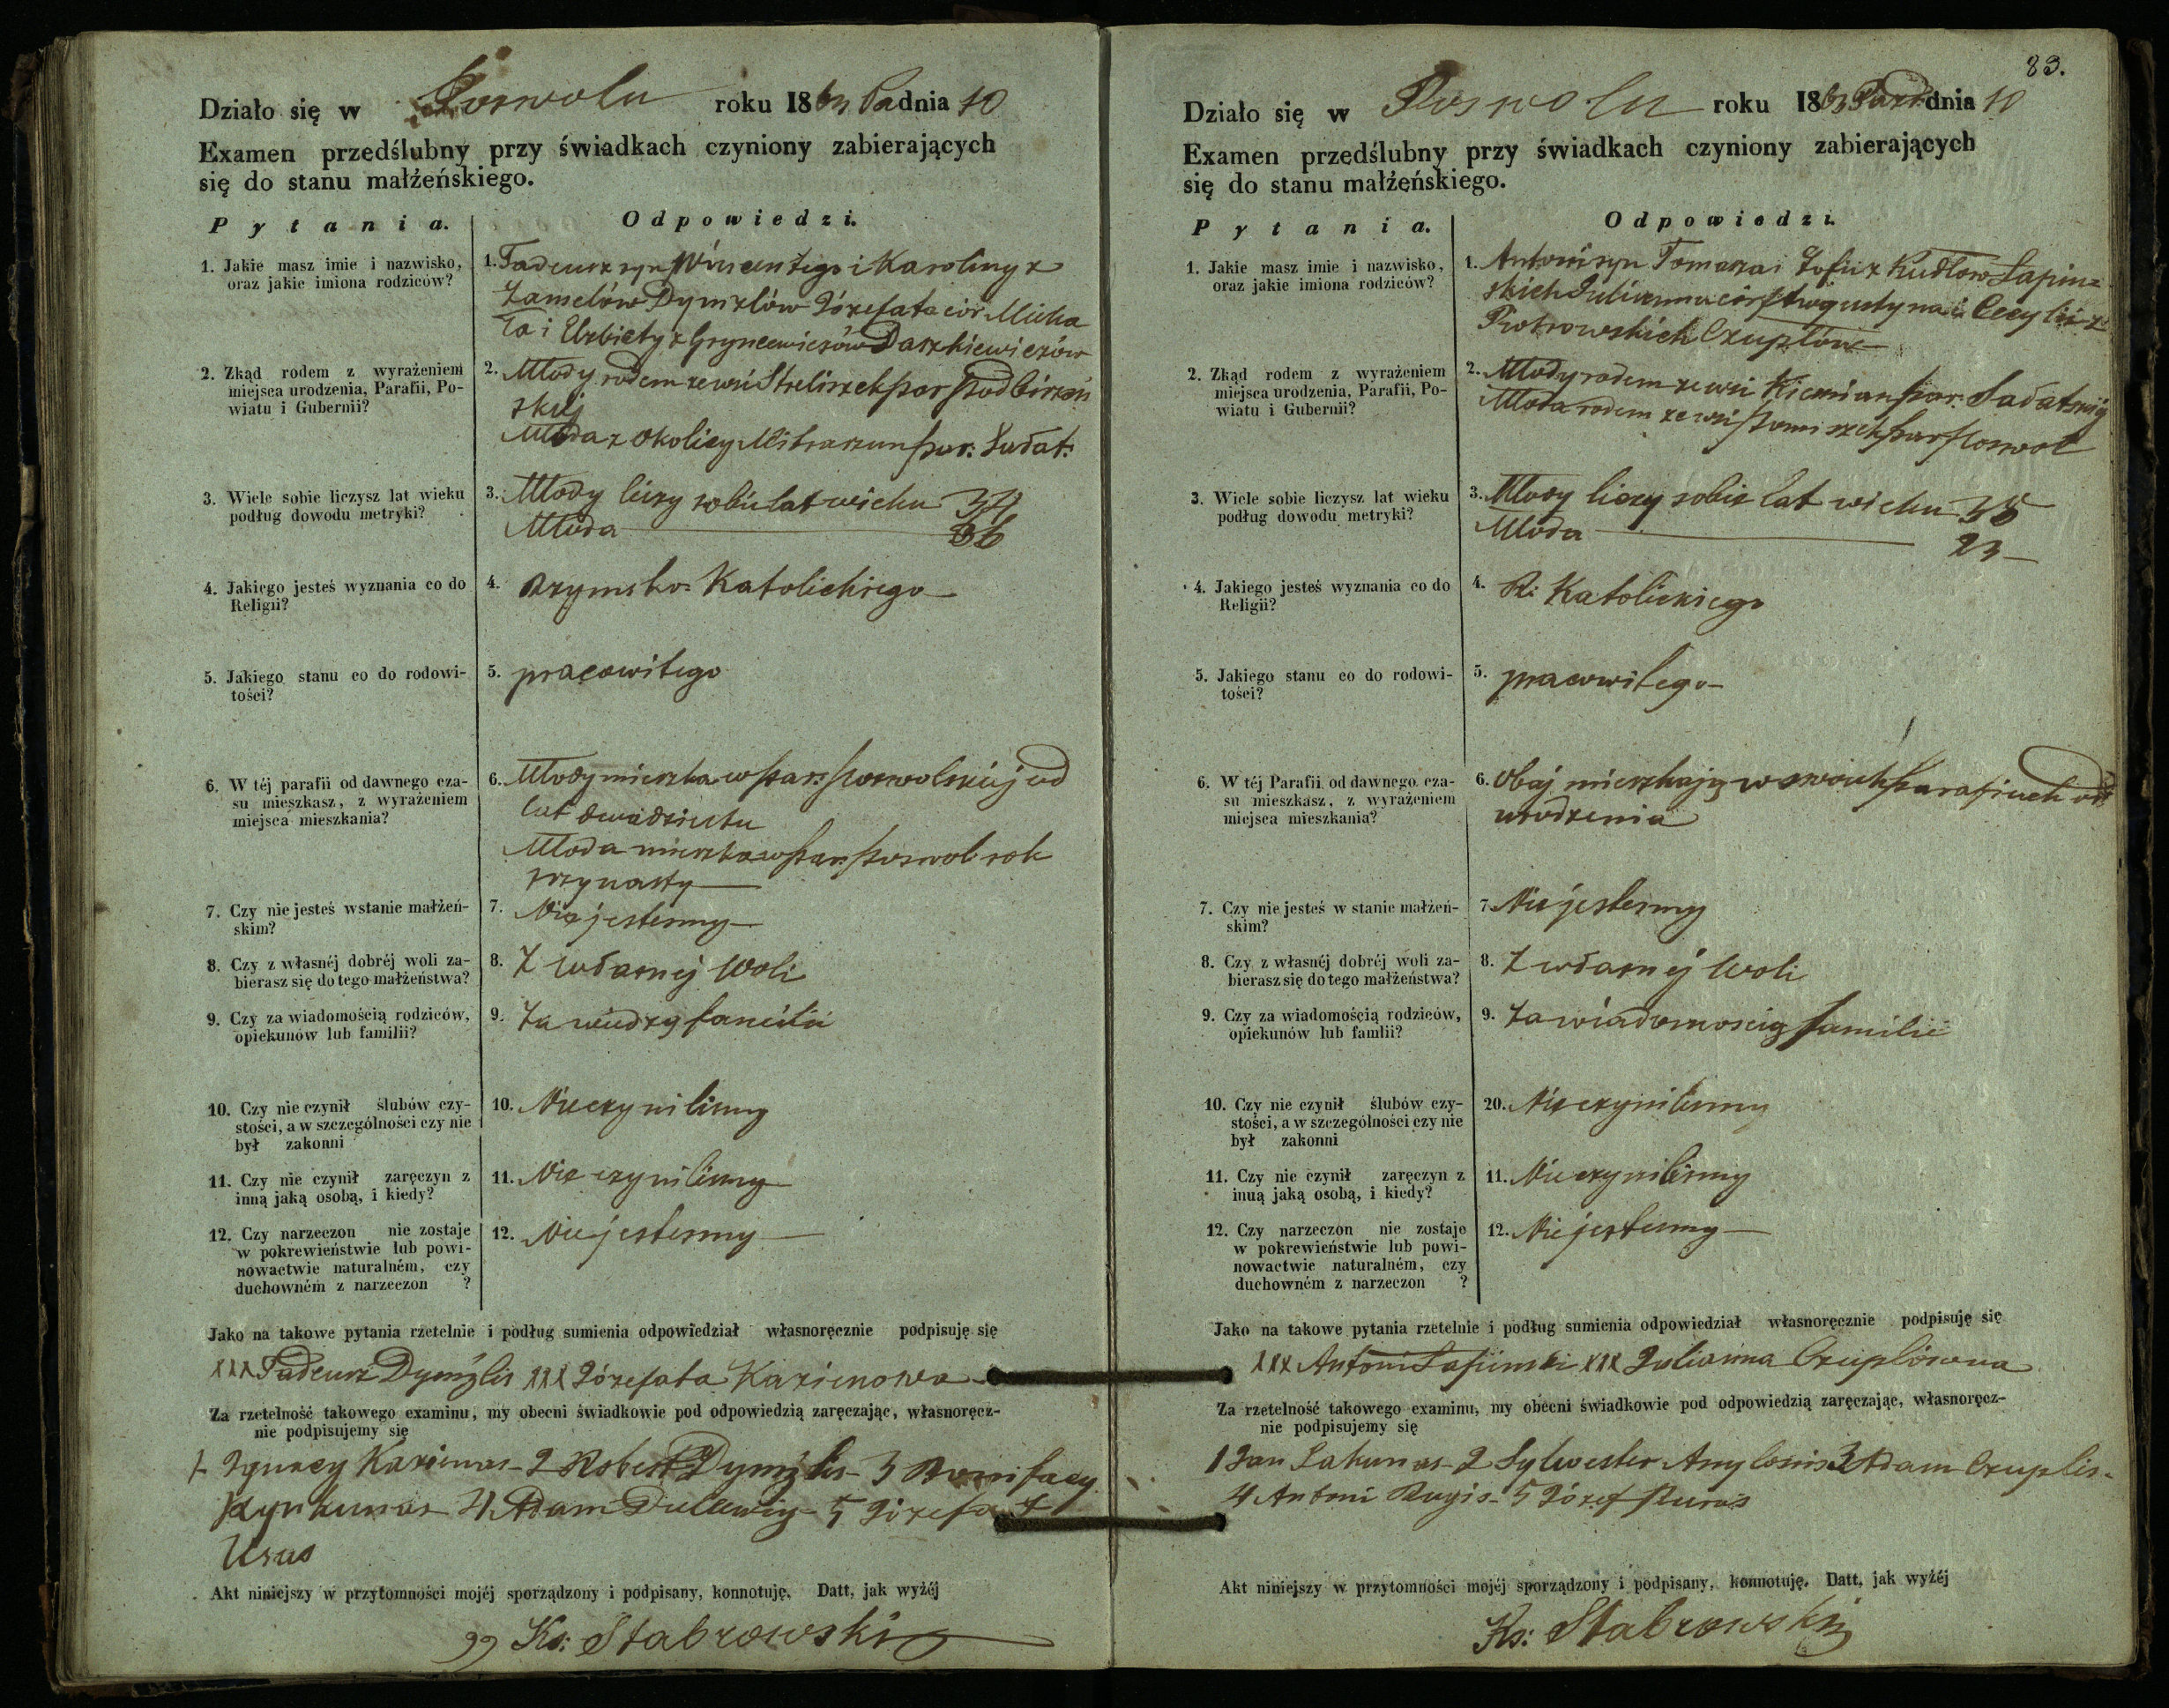 Działo się w Poswolu roku 186 dnia 10
Examen przedślubny przy świadkach czyniony zabierających
się do stanu małżeńskiego.
Pytania. Odpowiedzi.
1. Jakie masz imie i nazwisko,
oraz jakie imiona rodziców?
1. Tadeusz syn Wincentego i Karoliny z
Dymzlów Józefata cór Micha
ła i Elżbiety z Gryncewiczów Daszkiewiczów
2. Zkąd rodem z wyrażeniem
miejsca urodzenia, Parafii, Po-
wiatu i Gubernii?
2. Młody rodem ze wsi par Podbirżeń
skiej
Młoda z okolicy par: Sałat:
3. Wiele sobie liczysz lat wieku
podług dowodu metryki?
3. Młody liczy sobie lat wieku 34
Młoda 36
4. Jakiego jesteś wyznania co do
Religii?
4. Rzymsko Katolickiego
5. Jakiego stanu co do rodowi-
tości?
5. pracowitego
6. W téj parafii od dawnego cza-
su mieszkasz, z wyrażeniem
miejsca mieszkania?
6. Młody mieszka w par: Poswolskiej od
lat dwadziestu
Młoda mieszka w par: Poswol rok
7. Czy nie jesteś w stanie małżeń-
skim?
7. Nie jestesmy
8. Czy z własnéj dobréj woli za-
bierasz się do tego małżeństwa?
8. Z własnej woli
9. Czy za wiadomością rodziców,
opiekunów lub familii?
9. Za wiedzą familii
10. Czy nie czynił ślubów czy-
stości, a w szczególności czy nie
był zakonni
10. Nie czynilismy
11. Czy nie czynił zaręczyn z
inną jaką osobą, i kiedy?
11. Nie czynilismy
12. Czy narzeczon nie zostaje
w pokrewieństwie lub powi-
nowactwie naturalném, czy
duchowném z narzeczon ?
12. Nie jestesmy
Jako na takowe pytania rzetelnie i podług sumienia odpowiedział własnoręcznie podpisuję się
xxx Tadeusz Dymzlis xxx Józefata Kazienowa
Za rzetelność takowego examinu, my obecni świadkowie pod odpowiedzią zaręczając, własnoręcz-
nie podpisujemy się
1 Ignacy Kazienas 2 Robert Dymzlis 3 Bonifacy
Rynkunas 4 Adam 5 Józef
Usas
Akt niniejszy w przytomności mojéj sporządzony i podpisany, konnotuję. Datt, jak wyżéj
Ks: Stabrowski
83.
Działo się w Poswolu roku 186 dnia 10
Examen przedślubny przy świadkach czyniony zabierających
się do stanu małżeńskiego.
Pytania. Odpowiedzi.
1. Jakie masz imie i nazwisko,
oraz jakie imiona rodziców?
1. Antoni syn Tomasza i Zofii z Kudłów Łapin=
skich Julianna cór Augustyna i Cecylii z
Piotrowskich Czuplów
2. Zkąd rodem z wyrażeniem
miejsca urodzenia, Parafii, Po-
wiatu i Gubernii?
2. Młody rodem ze wsi par: Sałatskiej
Młoda rodem ze wsi par Poswol
3. Wiele sobie liczysz lat wieku
podług dowodu metryki?
3. Młody liczy sobie lat wieku 38
Młoda 23
4. Jakiego jesteś wyznania co do
Religii?
4. R: Katolickiego
5. Jakiego stanu co do rodowi-
tości?
5. pracowitego
6. W téj Parafii od dawnego cza-
su mieszkasz, z wyrażeniem
miejsca mieszkania?
6. Obaj mieszkają w swoich parafiach od
urodzenia
7. Czy nie jesteś w stanie małżeń-
skim?
7. Nie jestesmy
8. Czy z własnéj dobréj woli za-
bierasz się do tego małżeństwa?
8. Z własnej woli
9. Czy za wiadomością rodziców,
opiekunów lub famlii?
9. Za wiadomoscią familii
10. Czy nie czynił ślubów czy-
stości, a w szczególności czy nie
był zakonni
20. Nie czynilismy
11. Czy nie czynił zaręczyn z
inuą jaką osobą, i kiedy?
11. Nie czynilismy
12. Czy narzeczon nie zostaje
w pokrewieństwie lub powi-
nowactwie naturalném, czy
duchowném z narzeczon ?
12. Nie jestesmy
Jako na takowe pytania rzetelnie i podług sumienia odpowiedział własnoręcznie podpisuję się
xxx Antoni Łapinski xxx Julianna Czuplowna
Za rzetelność takowego examinu, my obecni świadkowie pod odpowiedzią zaręczając, własnoręcz-
nie podpisujemy się
1 Jan Lakunas 2 Sylwester 3 Adam Czuplis
4 Antoni Rugis 5 Józef Puras
Akt niniejszy w przytomności mojéj sporządzony i podpisany, konnotuję. Datt, jak wyźéj
Ks: Stabrowski